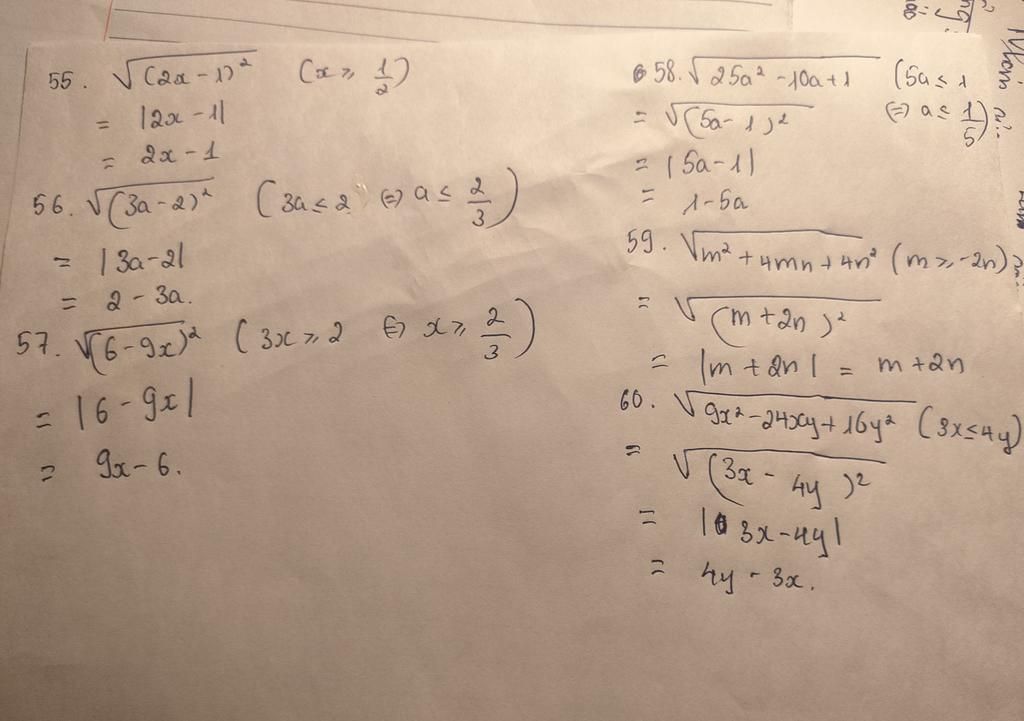 55. √(2x-1)² (x ⩾ 1/2)
= |2x-1|
= 2x-1
56. √(3a-2)² (3a ≤ 2 ⇔ a ≤ 2/3)
= |3a-2|
= 2-3a.
57. √(6-9x)² (3x ⩾ 2 ⇔ x ⩾ 2/3)
= |6-9x|
= 9x-6.
58. √25a²-10a+1 (5a ≤ 1
= √(5a-1)² ⇔ a ≤ 1/5)
= |5a-1|
= 1-5a
59. √m²+4mn+4n² (m ⩾ -2n)
= √(m+2n)²
= |m+2n| = m+2n
60. √9x²-24xy+16y² (3x ≤ 4y)
= √(3x-4y)²
= |3x-4y|
= 4y-3x.